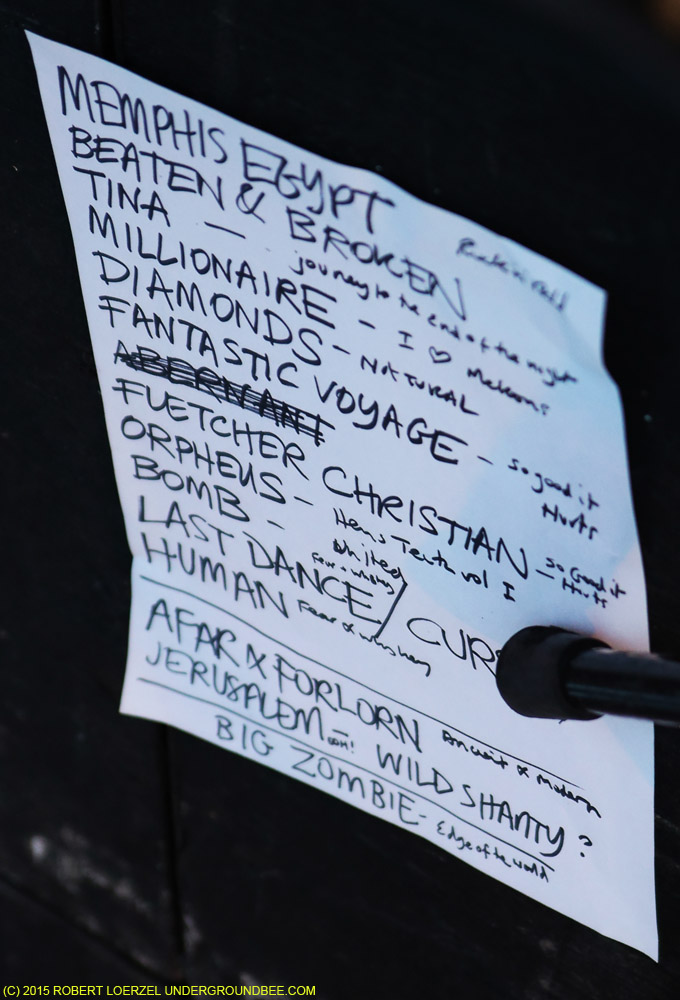 MEMPHIS EGYPT
Rock'n Roll
BEATEN & BROKEN
TINA — journey to the end of the night
MILLIONAIRE - I ♡ Mekons
DIAMONDS - NATURAL
FANTASTIC VOYAGE - so good it
Hurts
ABERNANT
FLETCHER CHRISTIAN - so Good it
Hurts
ORPHEUS - Hens Teeth vol I
BOMB - United
LAST DANCE / CURS
Fear & whiskey
HUMAN Fear & whiskey
AFAR & FORLORN Ancient & Modern
JERUSALEM - OOH! WILD SHANTY?
BIG ZOMBIE - Edge of the world
(C) 2015 ROBERT LOERZEL UNDERGROUNDBEE.COM